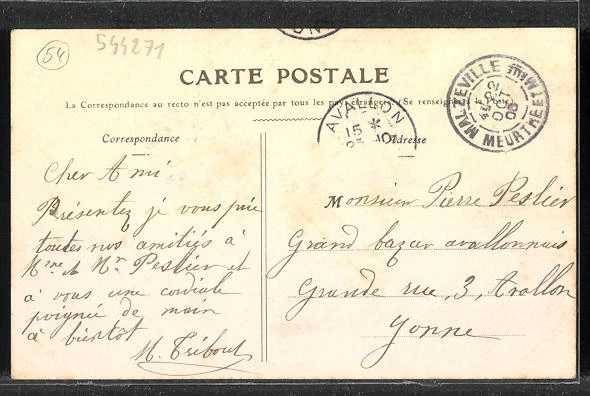 54
544271
CARTE POSTALE
La Correspondance au recto n'est pas acceptée par tous les pays étrangers. (Se renseigner à la Poste
AVALLON
15
MALZEVILLE
MEURTHE ET Mlle
Correspondance
Adresse
Cher Ami
Présentez je vous prie
toutes nos amitiés à
Mme & Mr Peslier et
à vous une cordiale
poignée de main
à bientôt
M. Trébout
Monsieur Pierre Peslier
Grand bazar avallonnais
Grande rue, 3, Avallon
Yonne